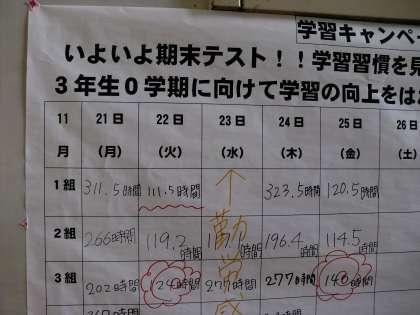 学習キャンペー
いよいよ期末テスト！！学習習慣を見
3年生0学期に向けて学習の向上をは
11月 21日(月) 22日(火) 23日(水) 24日(木) 25日(金) 26日(土)
1組 311.5時間 111.5時間 323.5時間 120.5時間
2組 266時間 119.2時間 時間 196.4時間 114.5時間
3組 202時間 124時間 27時間 277時間 140時間
勤労感